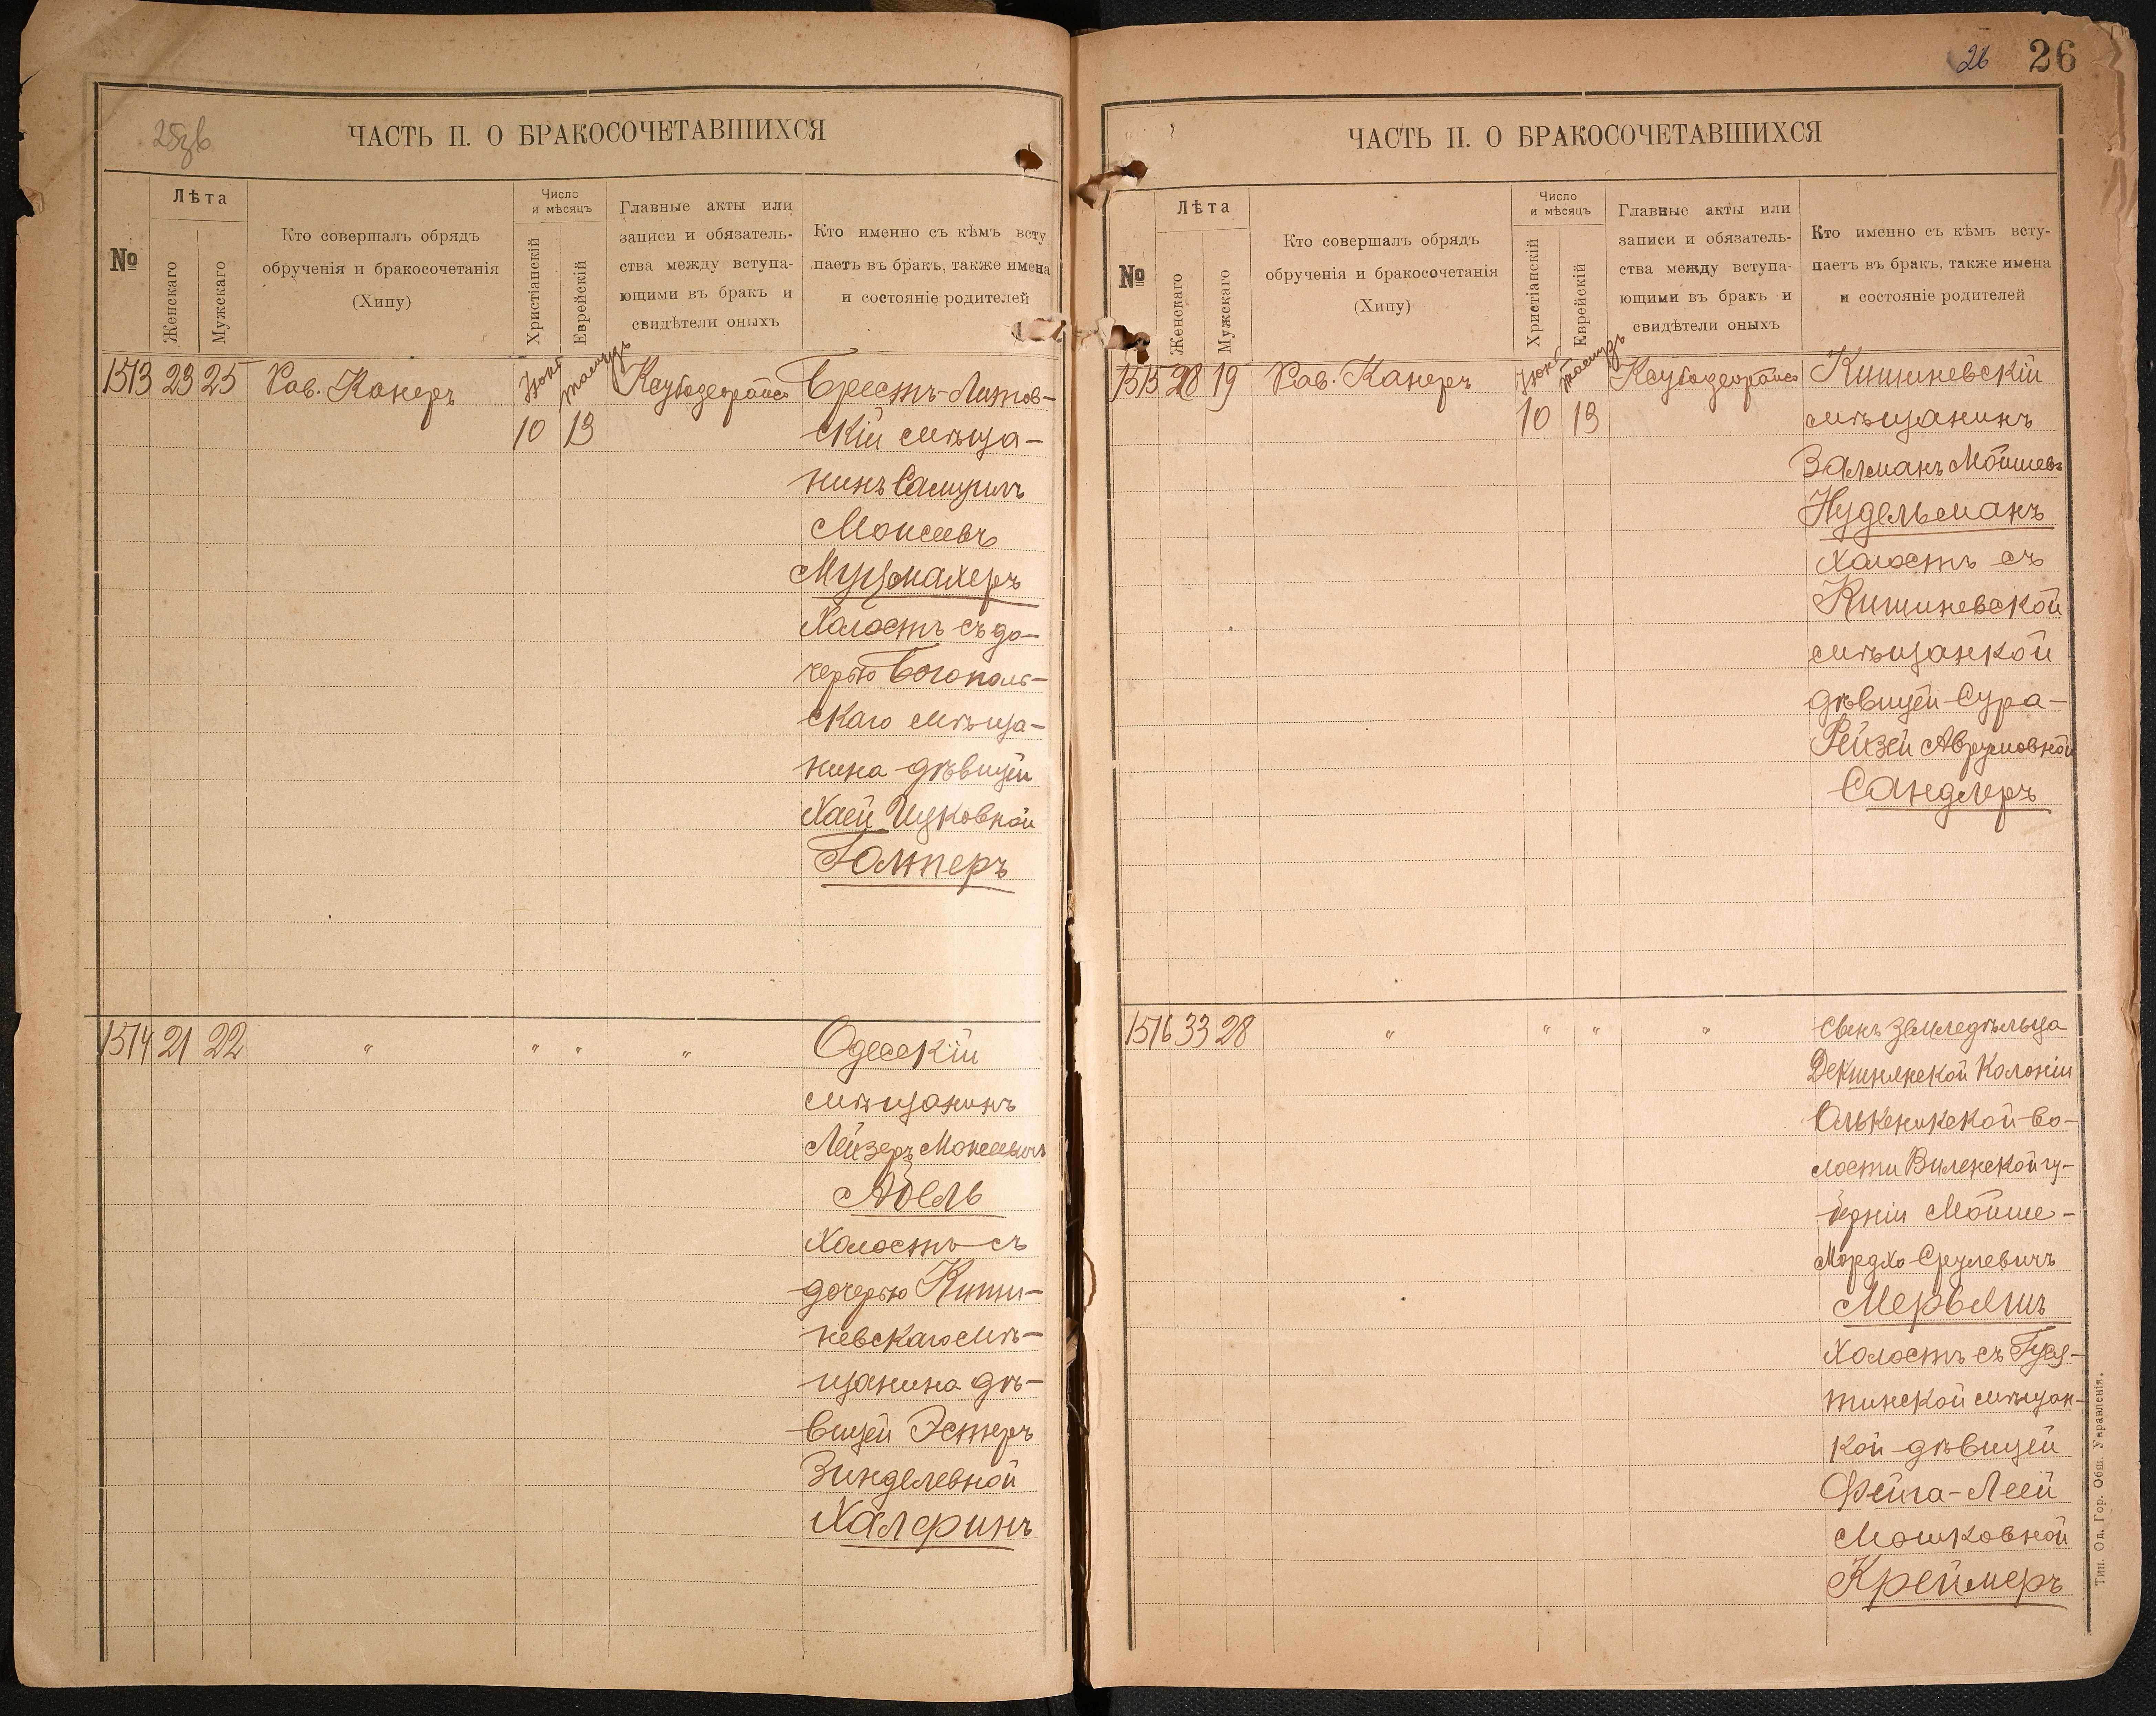 25об
ЧАСТЬ II. О БРАКОСОЧЕТАВШИХСЯ
№
Лѣта
Женскаго
Мужскаго
Кто совершалъ обрядъ
обрученія и бракосочетанія
(Хипу)
Число
и мѣсяцъ
Христіанскій
Еврейскій
Главные акты или
записи и обязатель-
ства между вступа-
ющими въ бракъ и
свидѣтели оныхъ
Кто именно съ кѣмъ всту
паетъ въ бракъ, также имена
и состояніе родителей
1513 23 25 Рав. Канеръ
Іюнь
10 13
Брестъ-Литов-
скій мѣща-
нинъ Самуилъ
Моисеевъ
Муцмахеръ
Холостъ съ до-
черью Богополь-
скаго мѣща-
нина дѣвицей
Хаей Ицковной
Галперъ
1514 21 22 " " " "
Одесскій
мѣщанинъ
Лейзеръ Моисеевичъ
Абель
Холостъ съ
дочерью Киши-
невскаго мѣ-
щанина дѣ-
вицей Эстеръ
Зинделевной
Халфинъ
26 26
ЧАСТЬ II. О БРАКОСОЧЕТАВШИХСЯ
№
Лѣта
Женскаго
Мужскаго
Кто совершалъ обрядъ
обрученія и бракосочетанія
(Хипу)
Число
и мѣсяцъ
Христіанскій
Еврейскій
Главные акты или
записи и обязатель-
ства между вступа-
ющими въ бракъ и
свидѣтели оныхъ
Кто именно съ кѣмъ всту-
паетъ въ бракъ, также имена
и состояніе родителей
1515 19 Рав. Канеръ
Іюнь
10 13
Кишиневскій
мѣщанинъ
Залманъ Мойшевъ
Нудельманъ
холостъ съ
Кишиневской
мѣщанкой
дѣвицей Сура-
Рейзей Аврумовной
Сандлеръ
1516 33 28 " " " "
Сынъ земледѣльца
Декшнянской Колоніи
Олькеникской во-
лости Виленской гу-
берніи Мойше-
Мордхо Срулевичъ
Мервлишъ
Холостъ съ Гуся-
тинской мѣщан-
кой дѣвицей
Фейга-Леей
Мошковной
Креймеръ
Тип. Од. Гор. Общ. Управленія.